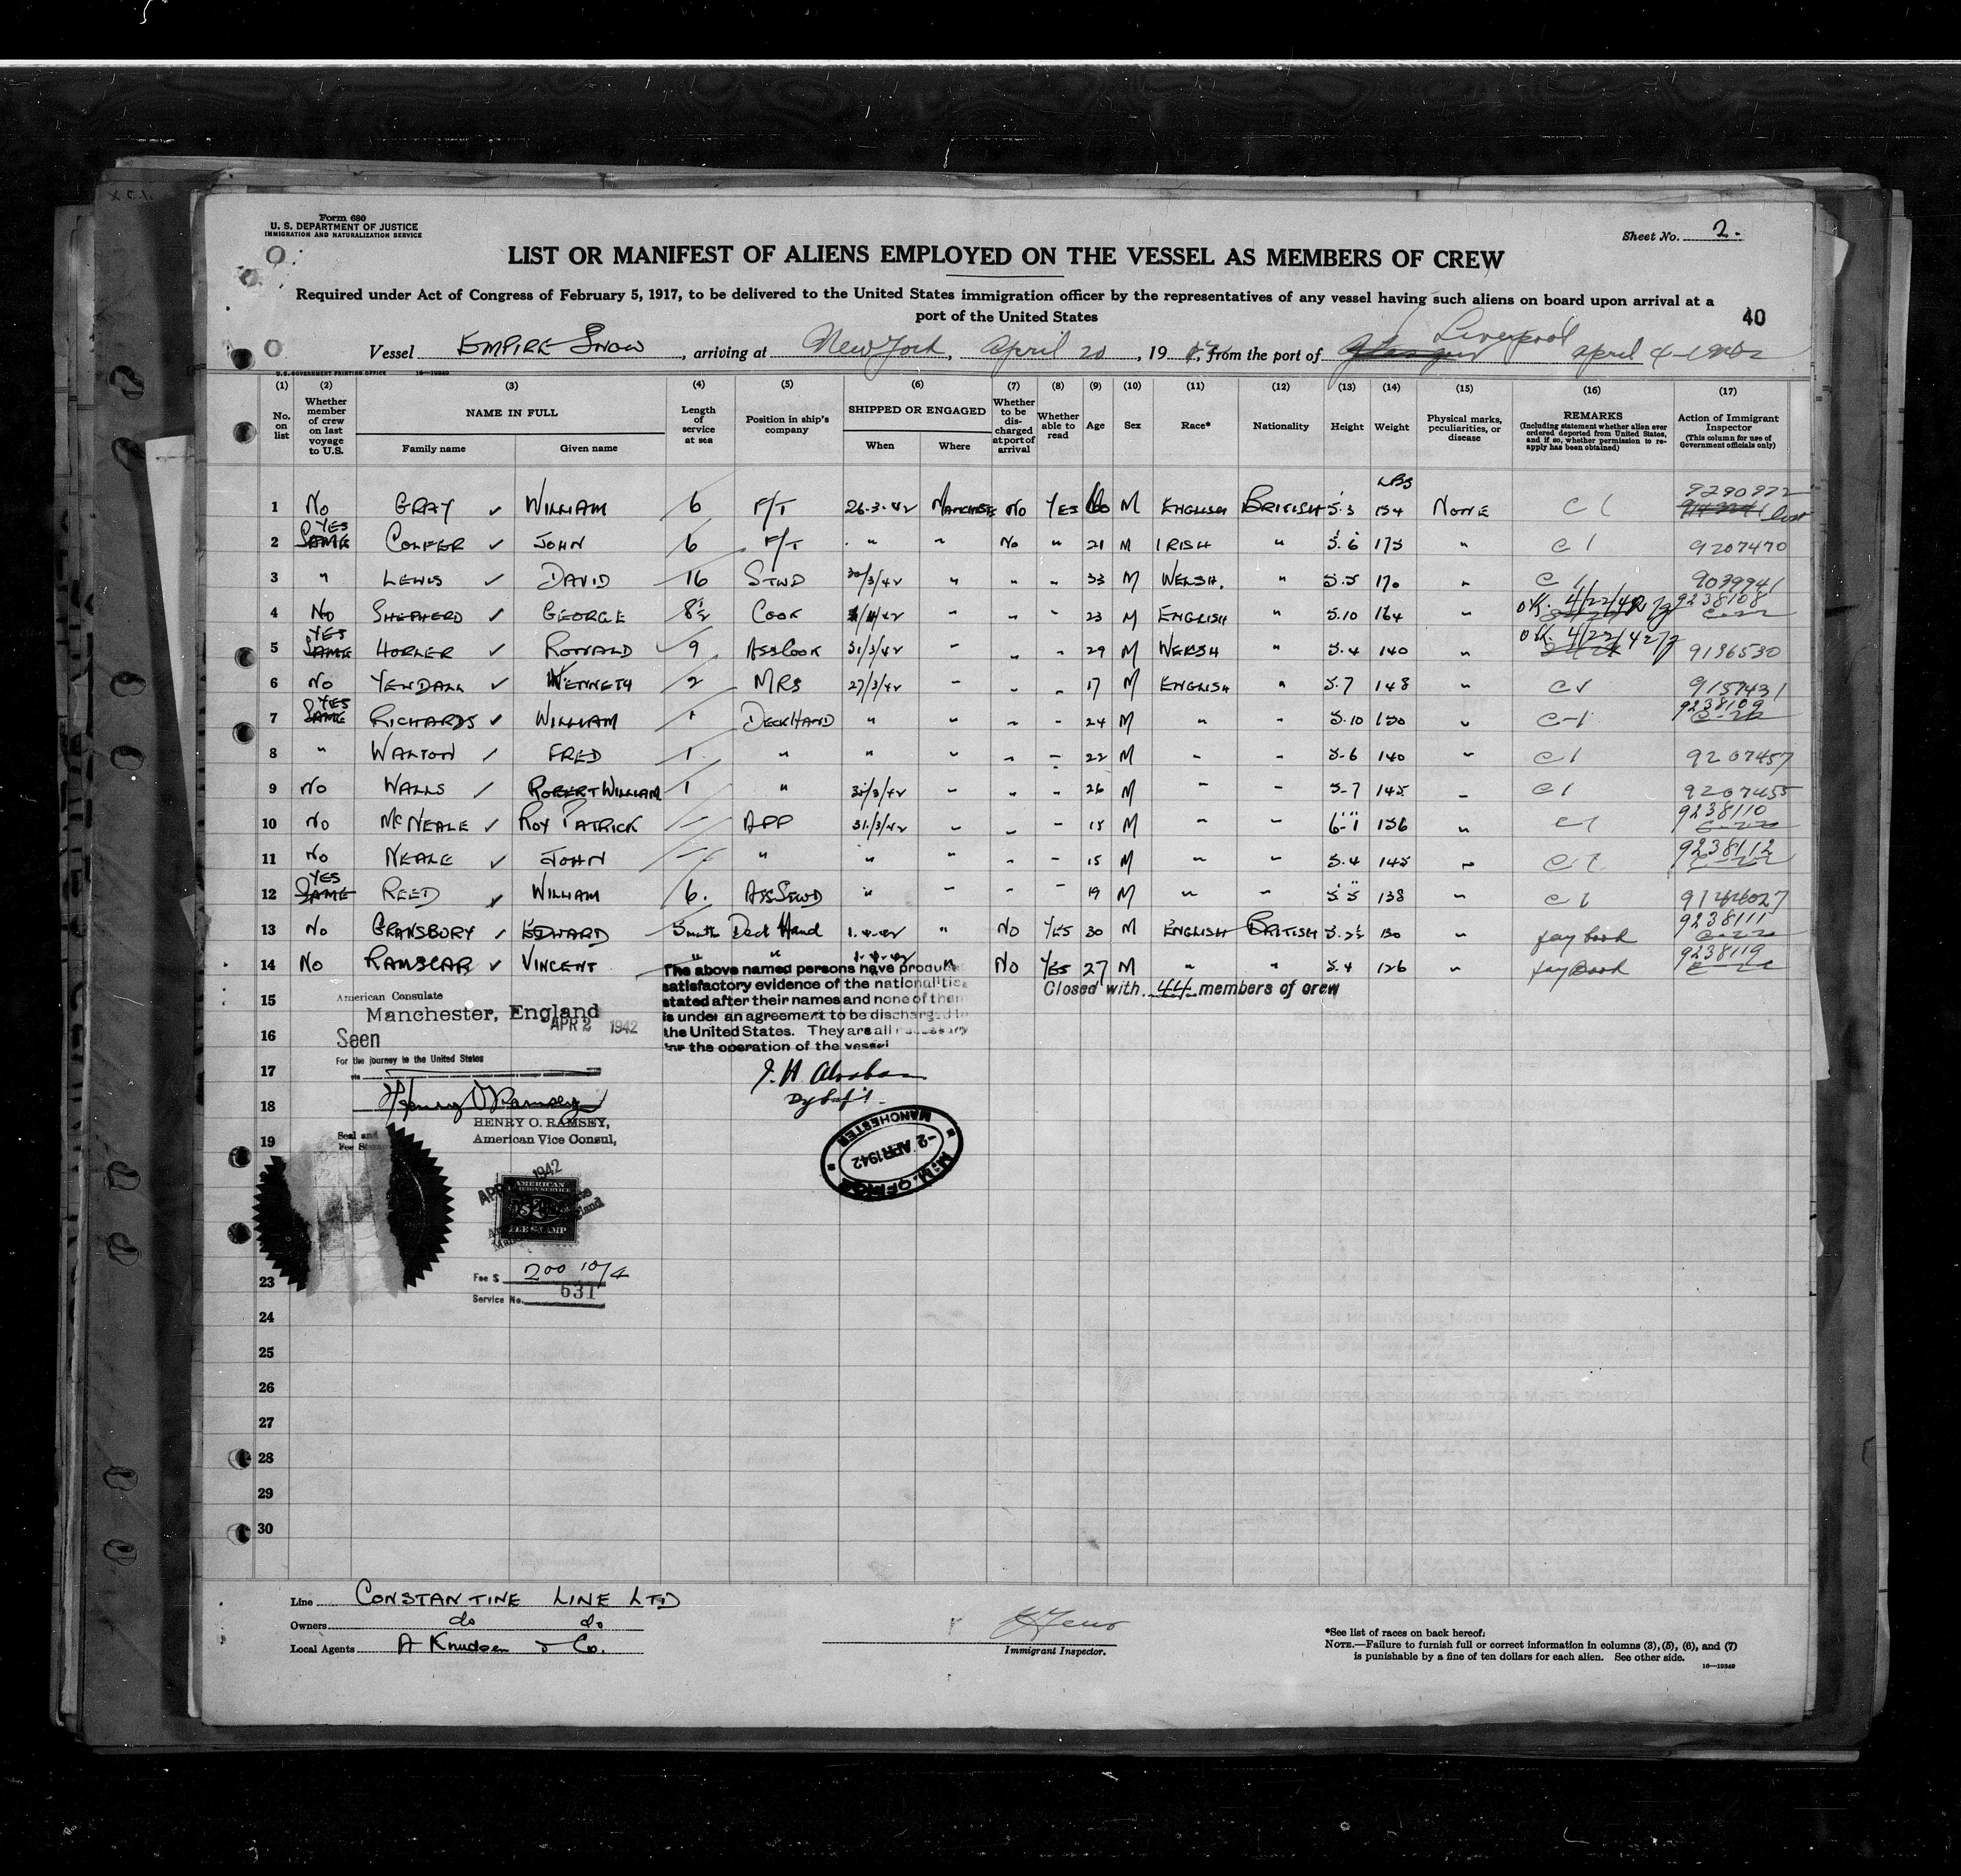 Form 680
U. S. DEPARTMENT OF JUSTICE
IMMIGRATION AND NATURALIZATION SERVICE
Sheet No. 2.
LIST OR MANIFEST OF ALIENS EMPLOYED ON THE VESSEL AS MEMBERS OF CREW
Required under Act of Congress of February 5, 1917, to be delivered to the United States immigration officer by the representatives of any vessel having such aliens on board upon arrival at a
port of the United States
40
Vessel EMPIRE SNOW, arriving at New York, April 20, 19 42, from the port of Glasgow Liverpool april 4-1942
U.S. GOVERNMENT PRINTING OFFICE 16—19349
(1) (2) (3) (4) (5) (6) (7) (8) (9) (10) (11) (12) (13) (14) (15) (16) (17)
No. on list
Whether member of crew on last voyage to U.S.
NAME IN FULL
Family name
Given name
Length of service at sea
Position in ship's company
SHIPPED OR ENGAGED
When
Where
Whether to be discharged at port of arrival
Whether able to read
Age
Sex
Race*
Nationality
Height
Weight
Physical marks, peculiarities, or disease
REMARKS
(Including statement whether alien ever ordered deported from United States, and if so, whether permission to reapply has been obtained)
Action of Immigrant Inspector
(This column for use of Government officials only)
LBS
1 No GRAY WILLIAM 6 F/T 26-3-42 MANCHESTER No YES 60 M ENGLISH BRITISH 5.3 154 NONE C 1 9290972 lost
2 YES SAME CONFER JOHN 6 F/T " " No " 21 M IRISH " 5.6 175 " C 1 9207470
3 " LEWIS DAVID 16 STWD 30/3/42 " " " 33 M WELSH. " 5.5 170 " C 1 9039941
4 No SHEPHERD GEORGE 8½ COOK " " 23 M ENGLISH " 5.10 164 " OK. 4/22/42 9238108 C-22
5 YES SAME HORLER RONALD 9 ASSCOOK 31/3/42 " " " 29 M WELSH " 5.4 140 " OK. 4/22/42 9136530
6 No YENDALL KENNETH 2 MRS 27/3/42 " " " 17 M ENGLISH " 5.7 148 " C 1 9157431
7 YES SAME RICHARDS WILLIAM 1 DECKHAND " " " " 24 M " " 5.10 150 " C-1 9238109 C-22
8 " WALTON FRED 1. " " " " " 22 M " " 5-6 140 " C 1 9207457
9 No WALLS ROBERT WILLIAM 1 " 31/3/42 " " " 26 M " " 5-7 145 " C 1 9207455
10 No MCNEALE ROY PATRICK — APP 31/3/42 " " " 15 M " " 6-1 156 " C 1 9238110 C-22
11 No NEALE JOHN — " " " " " 15 M " " 5.4 145 " C 1 9238112 C-22
12 YES SAME REED WILLIAM 6. ASSSTWD " " " " 19 M " " 5.5 138 " C 1 9144027
13 No GRANSBURY EDWARD 5 mths Deck Hand 1.4.42 " No YES 30 M ENGLISH BRITISH 5.2½ 130 " pay book 9238111 C-22
14 No RAMSCAR VINCENT " " 1.4.42 " No YES 27 M " " 5.4 126 " pay book 9238119 C-22
The above named persons have produced
satisfactory evidence of the nationalities
stated after their names and none of them
is under an agreement to be discharged in
the United States. They are all necessary
for the operation of the vessel
Closed with 44 members of crew
15
16
17
18
19
23
24
25
26
27
28
29
30
American Consulate
Manchester, England
APR 2 1942
Seen
For the journey to the United States
via
Henry O Ramsey
HENRY O. RAMSEY,
American Vice Consul,
Seal and
Fee Stamp
M.M. OFFICE
-2 APR 1942
MANCHESTER
APR 1942
AMERICAN
FOREIGN SERVICE
FEE STAMP
Fee $ 2 00 10/4
Service No. 631
Line CONSTANTINE LINE LTD
Owners do do
Local Agents A Knudsen & Co.
Immigrant Inspector.
*See list of races on back hereof.
NOTE.—Failure to furnish full or correct information in columns (3), (5), (6), and (7)
is punishable by a fine of ten dollars for each alien. See other side.
16—19349